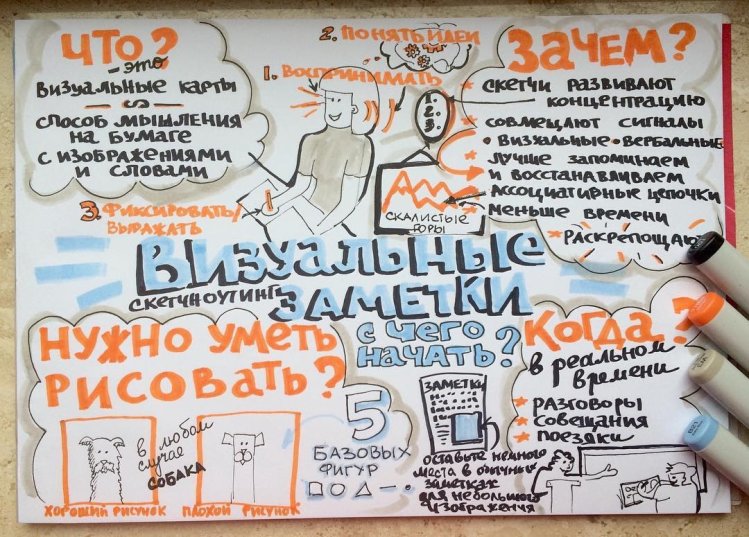 ЧТО?
– это
ВИЗУАЛЬНЫЕ КАРТЫ
СПОСОБ МЫШЛЕНИЯ
НА БУМАГЕ
С ИЗОБРАЖЕНИЯМИ
И СЛОВАМИ
1. ВОСПРИНИМАТЬ
2. ПОНЯТЬ ИДЕИ
3. ФИКСИРОВАТЬ/
ВЫРАЖАТЬ
1.
2.
3.
СКАЛИСТЫЕ
ГОРЫ
ЗАЧЕМ?
СКЕТЧИ РАЗВИВАЮТ
КОНЦЕНТРАЦИЮ
СОВМЕЩАЮТ СИГНАЛЫ
• ВИЗУАЛЬНЫЕ • ВЕРБАЛЬНЫЕ
ЛУЧШЕ ЗАПОМИНАЕМ
И ВОССТАНАВЛИВАЕМ
АССОЦИАТИВНЫЕ ЦЕПОЧКИ
МЕНЬШЕ ВРЕМЕНИ
ВИЗУАЛЬНЫЕ
ЗАМЕТКИ
СКЕТЧНОУТИНГ
НУЖНО УМЕТЬ
РИСОВАТЬ?
в любом
случае
СОБАКА
ХОРОШИЙ РИСУНОК
ПЛОХОЙ РИСУНОК
С ЧЕГО
НАЧАТЬ?
5
БАЗОВЫХ
ФИГУР
ЗАМЕТКИ
ОСТАВЬТЕ НЕМНОГО
МЕСТА В ОБЫЧНЫХ
ЗАМЕТКАХ
ДЛЯ НЕБОЛЬШОГО
ИЗОБРАЖЕНИЯ
КОГДА?
в реальном
времени
РАЗГОВОРЫ
СОВЕЩАНИЯ
ПОЕЗДКИ